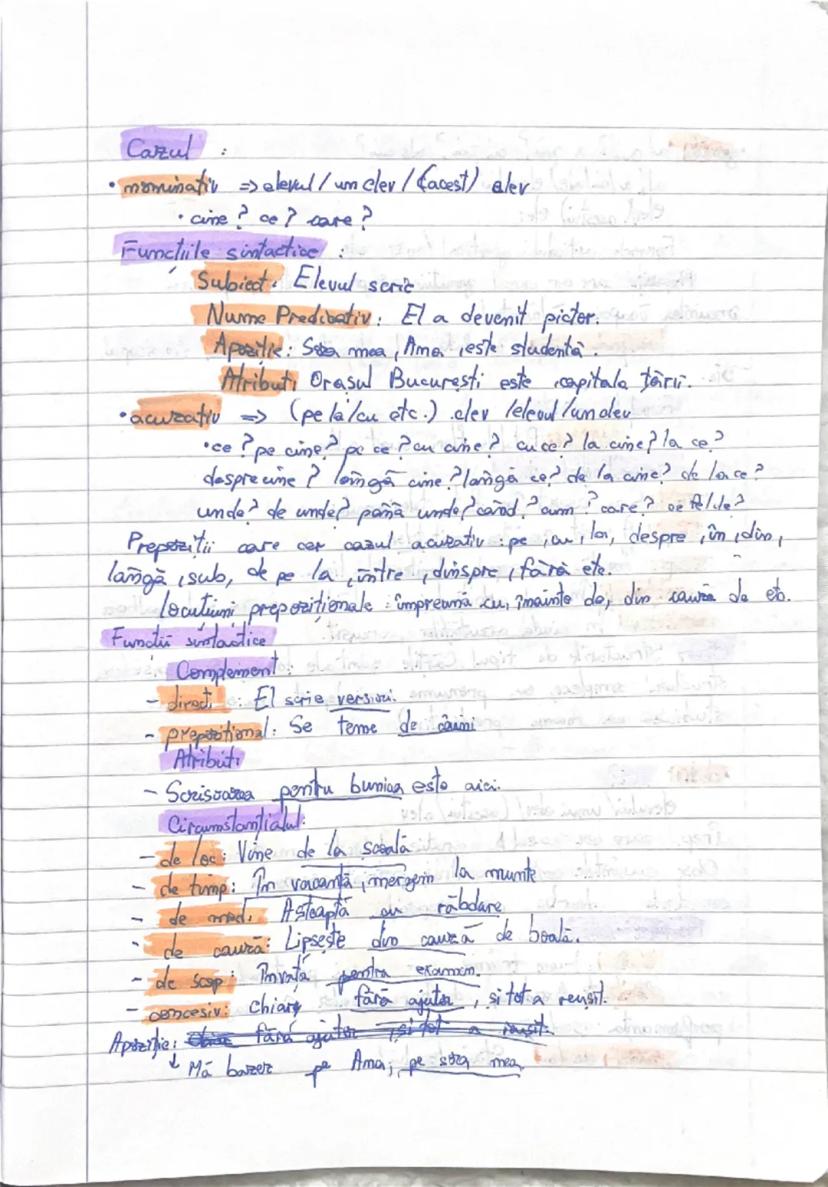 Cazul :
• nominativ => elevul / un elev / (acest) elev
• cine? ce? care?
Funcțiile sintactice :
Subiect: Elevul scrie
Nume Predicativ: El a devenit pictor.
Apoziție: Sora mea, Ama, este studentă.
Atribut: Orașul București este capitala țării.
• acuzativ => (pe la/cu etc.) elev /elevul/un elev
• ce? pe cine? pe ce? cu cine? cu ce? la cine? la ce?
despre cine? lângă cine? lângă ce? de la cine? de la ce?
unde? de unde? până unde? când? cum? care? ce fel de?
Prepoziții care cer cazul acuzativ: pe, cu, la, despre, în, din,
lângă, sub, de pe la, între, dinspre, fără etc.
locuțiuni prepoziționale: împreună cu, înainte de, din cauza de etc.
Funcții sintactice
Complement:
- direct: El scrie versuri.
- prepozițional: Se teme de câini
Atribut:
- Scrisoarea pentru bunica este aici.
Circumstanțialul:
- de loc: Vine de la școală
- de timp: În vacanță, mergem la munte
- de mod: Așteaptă cu răbdare
- de cauză: Lipsește din cauză de boală.
- de scop: Învață pentru examen.
- concesiv: Chiar fără ajutor, și tot a reușit.
Apoziție: fără ajutor, și tot a reușit.
↓ Mă bazez pe Ama, pe sora mea